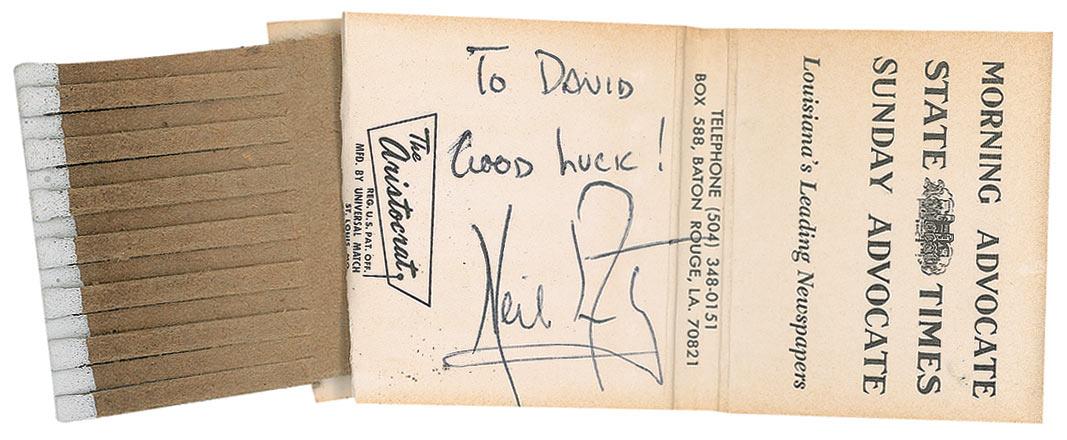 To David
Good Luck!
Neil
The
Aristocrat
REG. U.S. PAT. OFF.
MFD. BY UNIVERSAL MATCH
ST. LOUIS
TELEPHONE (504) 348-0151
BOX 588, BATON ROUGE, LA. 70821
MORNING ADVOCATE
STATE TIMES
SUNDAY ADVOCATE
Louisiana's Leading Newspapers